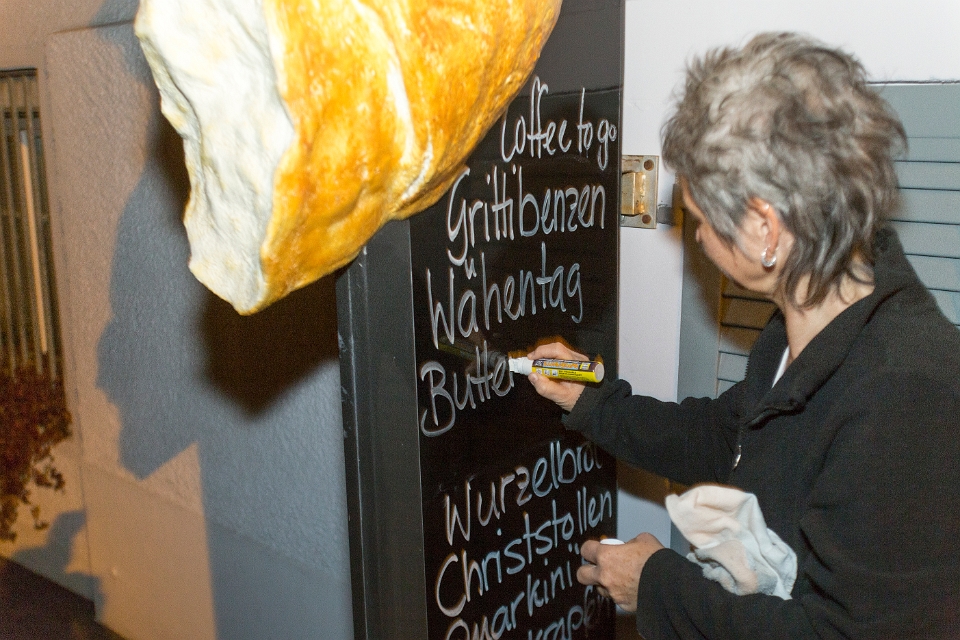 Coffee to go
Grittibenzen
Wähentag
Butter
Wurzelbrot
Christstollen
Quarkini
krapfen